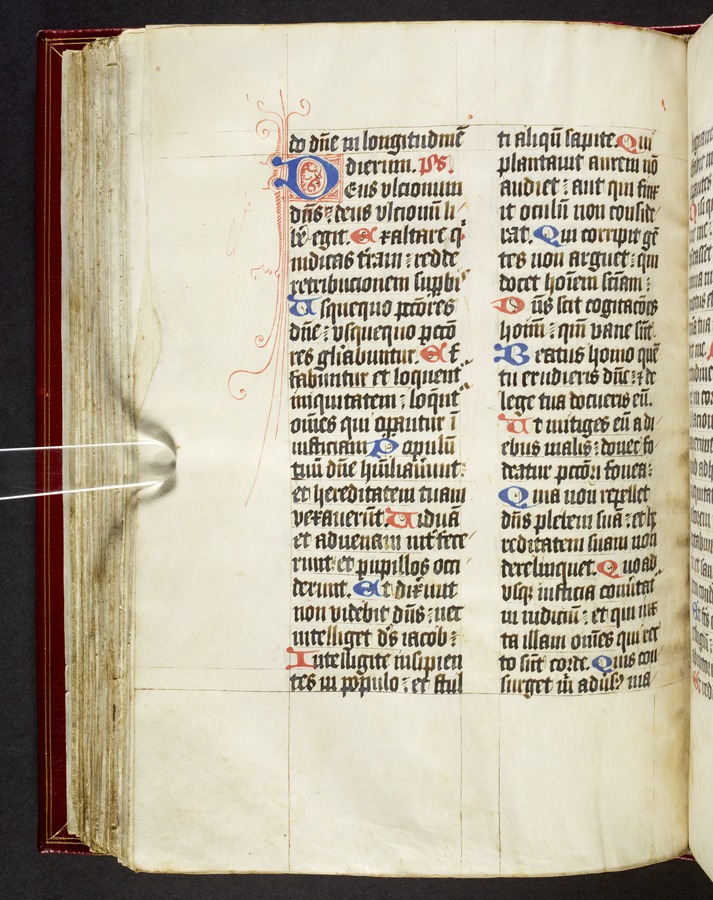 do dn̄e in longitudinē
dierum. ps.
Deus vltionum
dn̄s : deus vltionū li
b̄e egit. Exaltare q̇
iudicas t̄ram : redde
retribucionem sup̄bis
Vsquequo pctōres
dn̄e : vsquequo pctō
res gl̄iabuntur. Ef
fabuntur et loquent᷑
iniquitatem : loq̄nt᷑
om̄es qui op̄antur ī
iusticiam Populū
tuū dn̄e hūiliauerūt :
et hereditatem tuam
vexauerūt. Viduā
et aduenam int̄fece
runt : et pupillos occi
derunt. Et dixerūt
non videbit dn̄s : nec
intelliget ds̄ iacob :
Intelligite insipien
tes in populo : et stul
ti aliqn̄ sapite. Qui
plantauit aurem nō
audiet : aut qui finx
it oculū non conside
rat. Qui corripit gē
tes non arguet : qui
docet hoīem sciām :
Dn̄s scit cogitacōes
hoīm : qm̄ vane sūt.
Beatus homo quē
tu erudieris dn̄e : ⁊ de
lege tua docueris eū.
Vt mitiges eū a di
ebus malis : donec fo
deatur pctōri fouea :
Quia non repellet
dn̄s plebem suā : et he
reditatem suam non
derelinquet. Quo ad
vsq̄ iusticia conūtat᷑
in iudiciū : et qui iux
ta illam om̄es qui rec
to sūt corde. Quis con
surget m̄ adūs⁹ ma